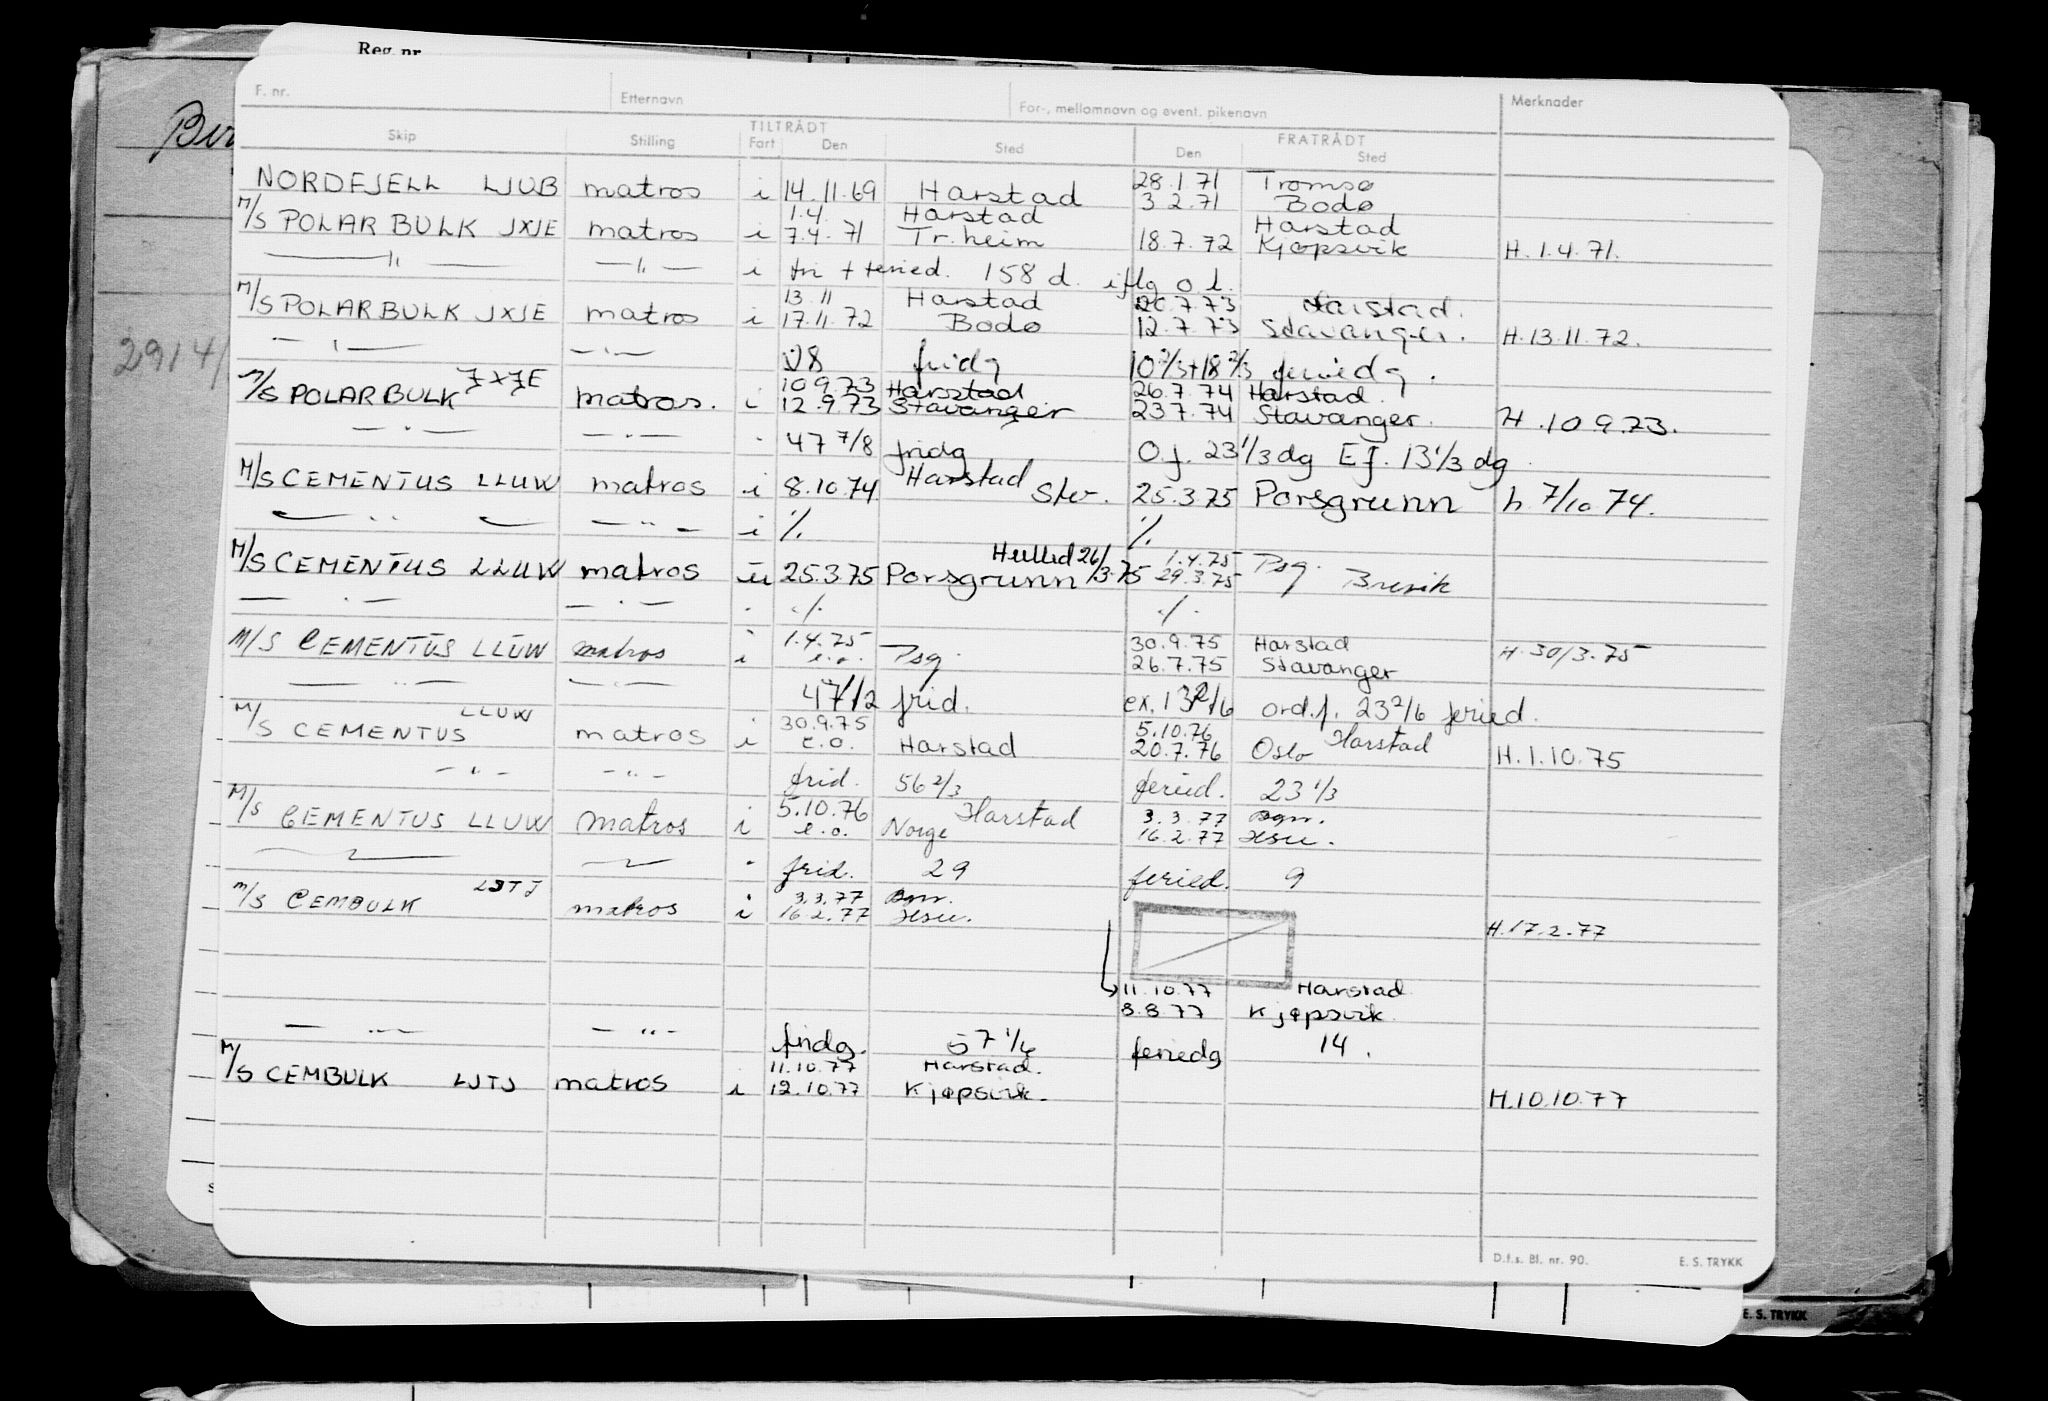 Reg. nr.
F. nr. Etternavn For-, mellomnavn og event. pikenavn Merknader
TILTRÅDT FRATRÅDT
Skip Stilling Fart Den Sted Den Sted
NORDFJELL LJUB matros i 14.11.69 Harstad 28.1.71 Tromsø
3.2.71 Bodø
1.4. Harstad Harstad
M/S POLAR BULK JXJE matros i 7.4.71 Tr.heim 18.7.72 Kjøpsvik H.1.4.71.
— " — — " — i fri + feried. 158 d. iflg o.l.
13.11 Harstad 26.7.73 Harstad.
M/S POLARBULK JXJE matros i 17.11.72 Bodø 12.7.73 Stavanger. H.13.11.72.
— " — — " — 28 fridg 10 2/3+18 2/3 feriedg.
JXJE 10.9.73 Harstad 26.7.74 Harstad.
M/S POLARBULK matros. i 12.9.73 Stavanger 23.7.74 Stavanger. H.10.9.73.
— " — — " — " 47 7/8 fridg O.f. 23 1/3 dg E.f. 13 1/3 dg
M/S CEMENTUS LLUW matros i 8.10.74 Harstad Stv. 25.3.75 Porsgrunn h. 7/10.74.
— " — — " — i ./. ./.
Hullid 26/3.75 1.4.75 Psg.
M/S CEMENTUS LLUW matros u 25.3.75 Porsgrunn 29.3.75 Brevik
— " — — " — " ./. ./.
" 1.4.75 30.9.75 Harstad
M/S CEMENTUS LLUW matros i e.o. Psg. 26.7.75 Stavanger H.30/3.75
— " — — " — 47 1/2 frid. ex. 13 2/6 ord.f. 23 2/6 feried.
LLUW i 30.9.75 5.10.76 Harstad
M/S CEMENTUS matros i e.o. Harstad 20.7.76 Oslo H.1.10.75
— " — — " — frid. 56 2/3 feried. 23 1/3
5.10.76 Harstad 3.3.77 Bgn.
M/S CEMENTUS LLUW matros i e.o. Norge 16.2.77
— " — — " — " frid. 29 feried. 9
LJTJ i 3.3.77 Bgn.
M/S CEMBULK matros i 16.2.77 H.17.2.77
11.10.77 Harstad
8.8.77 Kjøpsvik.
— " — — " — fridg. 57 1/6 feriedg 14.
11.10.77 Harstad.
M/S CEMBULK LJTJ matros i 12.10.77 Kjøpsvik. H.10.10.77
D.f.s. Bl. nr. 90. E. S. TRYKK
E. S. TRYKK
2914/